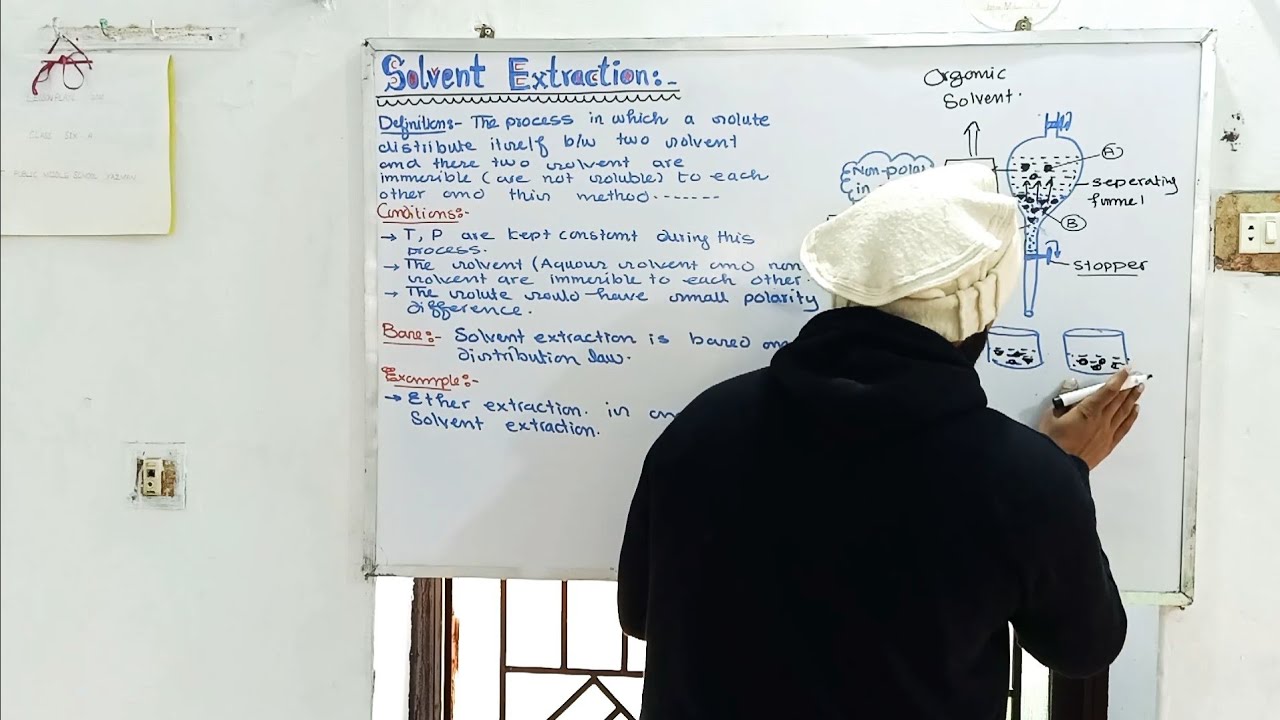 Solvent Extraction:-
Definition:- The process in which a solute
distribute itself b/w two solvent
and these two solvent are
immersible (are not soluble) to each
other and this method.......
Conditions:-
→ T, P are kept constant during this
process.
→ The solvent (Aquous solvent and non
solvent are immersible to each other.
→ The solute sould have small polarity
difference.
Base:- Solvent extraction is based on
distribution law.
Example:-
→ Ether extraction in
Solvent extraction.
Organic
Solvent.
Non-polar
in
A
seperating
funnel
B
stopper
LESSON PLANE
CLASS SIX A
PUBLIC MIDDLE SCHOOL